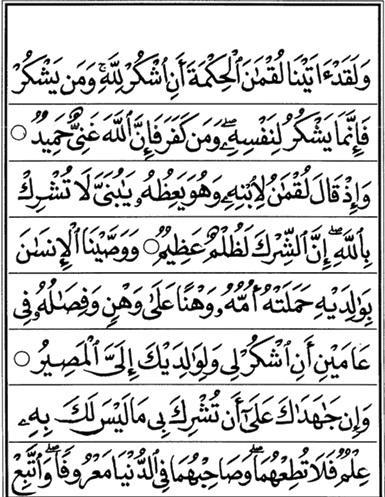 وَلَقَدْ ءَاتَيْنَا لُقْمَٰنَ ٱلْحِكْمَةَ أَنِ ٱشْكُرْ لِلَّهِۚ وَمَن يَشْكُرْ
فَإِنَّمَا يَشْكُرُ لِنَفْسِهِۦۖ وَمَن كَفَرَ فَإِنَّ ٱللَّهَ غَنِىٌّ حَمِيدٌ ۝
وَإِذْ قَالَ لُقْمَٰنُ لِٱبْنِهِۦ وَهُوَ يَعِظُهُۥ يَٰبُنَىَّ لَا تُشْرِكْ
بِٱللَّهِۖ إِنَّ ٱلشِّرْكَ لَظُلْمٌ عَظِيمٌ ۝ وَوَصَّيْنَا ٱلْإِنسَٰنَ
بِوَٰلِدَيْهِ حَمَلَتْهُ أُمُّهُۥ وَهْنًا عَلَىٰ وَهْنٍ وَفِصَٰلُهُۥ فِى
عَامَيْنِ أَنِ ٱشْكُرْ لِى وَلِوَٰلِدَيْكَ إِلَىَّ ٱلْمَصِيرُ ۝
وَإِن جَٰهَدَاكَ عَلَىٰٓ أَن تُشْرِكَ بِى مَا لَيْسَ لَكَ بِهِۦ
عِلْمٌ فَلَا تُطِعْهُمَاۖ وَصَاحِبْهُمَا فِى ٱلدُّنْيَا مَعْرُوفًاۖ وَٱتَّبِعْ